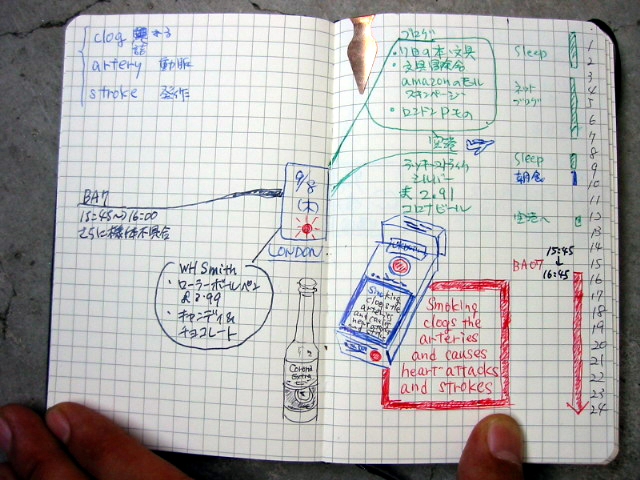 clog 詰まる
artery 動脈
stroke 発作
BA7
15:45→16:00
さらに機体不具合
9/8
(木)
LONDON
WH Smith
・ローラーボールペン
£2.99
・キャンディ&
チョコレート
Corona
Extra
ブログ
・文具
amazonのモル
スキンページ
・ロンドン
空港
ラッキーストライク
シルバー
£2.91
コロナビール
Smoking
clogs the
arteries
and causes
heart attacks
and strokes
Smoking
clogs the
arteries
and causes
heart attacks
and strokes
Sleep
ネット
ブログ
Sleep
朝食
空港へ
15:45
↓
BA07 16:45
1
2
3
4
5
6
7
8
9
10
11
12
13
14
15
16
17
18
19
20
21
22
23
24